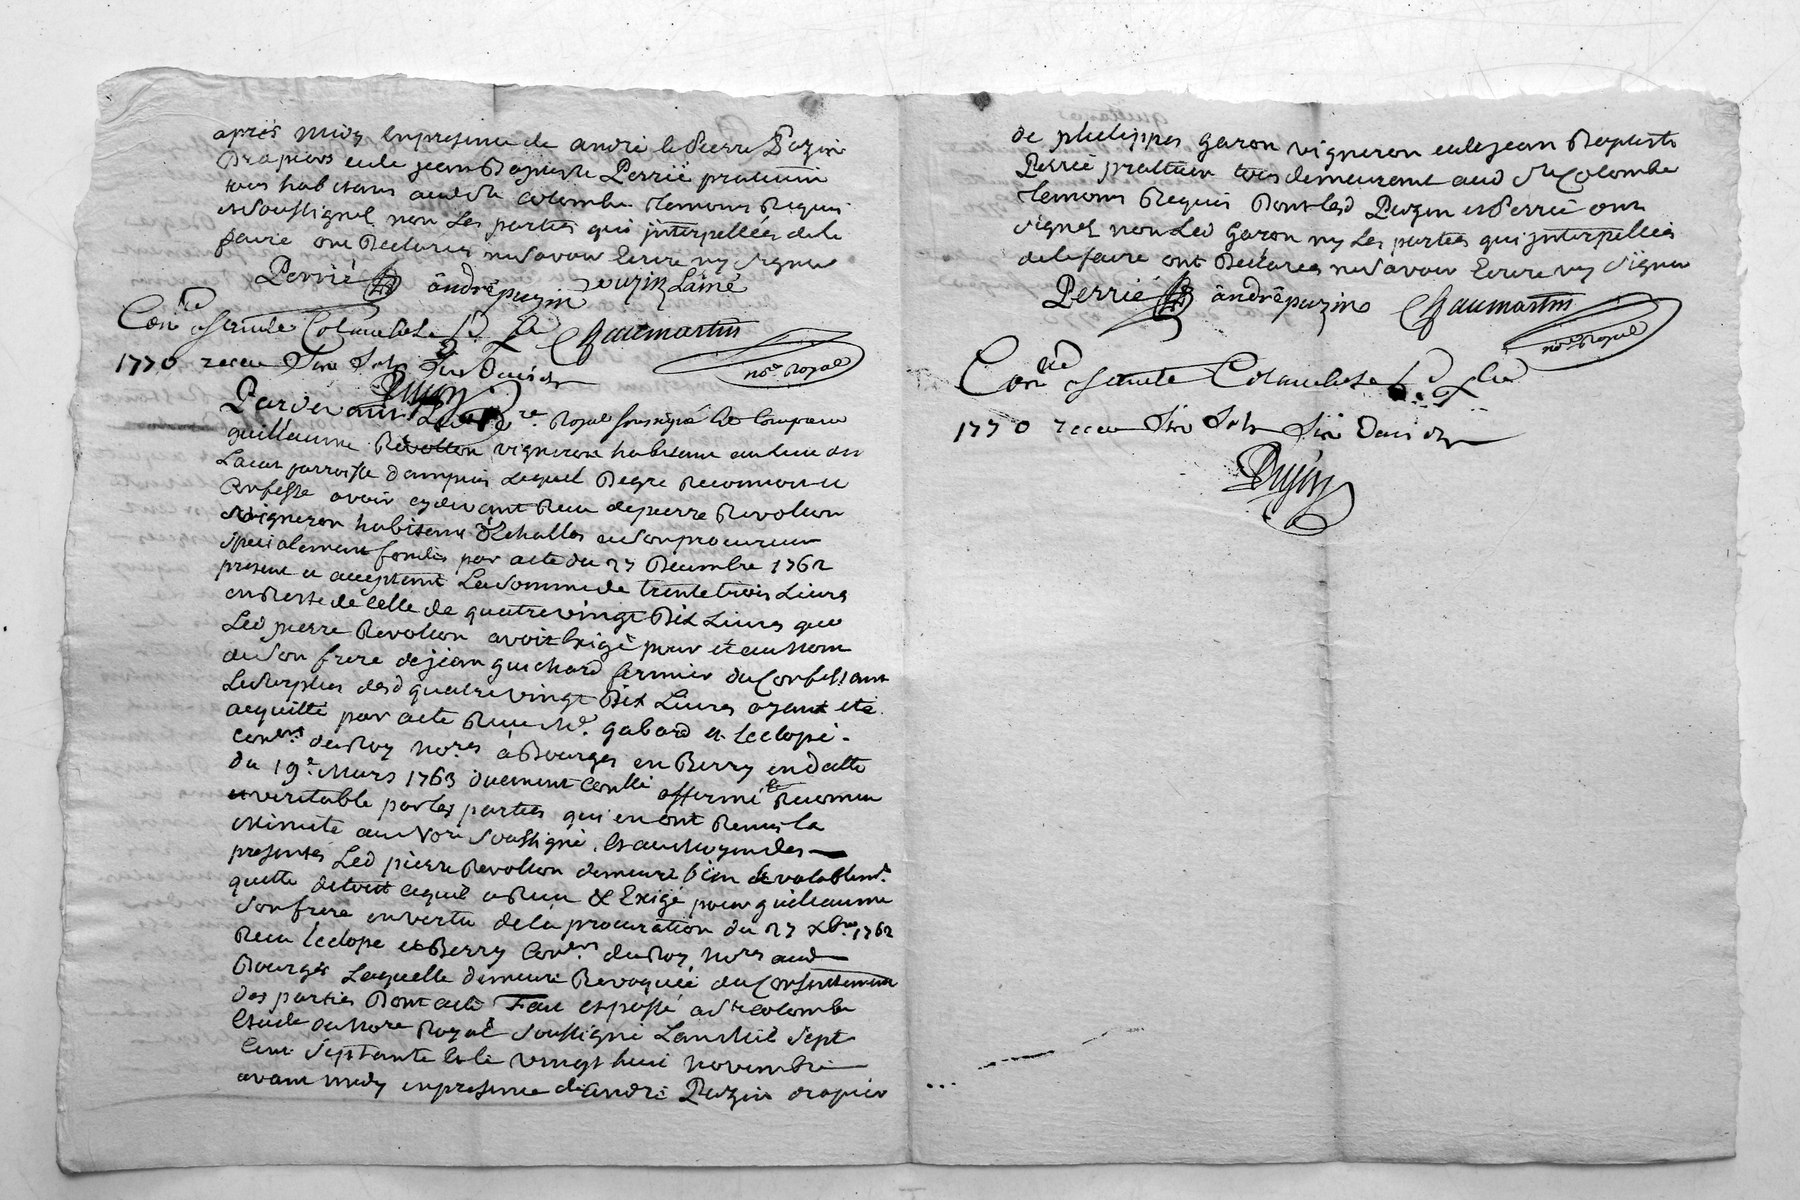 après midy en presence de andré & pierre Puzin
Drapiers et de jean Baptiste Perrié praticien
tous habitans aud Ste Colombe temoins Requis
et soussignés non les parties qui interpellées de le
faire ont declarées ne savoir Ecrire ny signer
Perrié andré puzin puzin Lainé
Conlé a sainte Colombe le Chaumartin
1770 receu Six Sols Six Deniers nore Royal
Pardevant Le nore Royal soussigné est Comparu
guillaume Revollon vigneron habitant au lieu du
parroisse dampuis Lequel de gré Reconnoit et
Confesse avoir cy devant Reçu de pierre Revollon
vigneron habitant d'Echallas et son procureur
specialement fondé par acte du 27 Decembre 1762
present et acceptant La somme de trente trois Livres
en Reste de Celle de quatre vingt Dix Livres que
Led pierre Revollon avoit Exigé pour et au Nom
de son frere de jean guichard fermier du Confessant
Le surplus desd quatre vingt Dix Livres ayant eté
acquitté par acte Reçu Me. gabard et Leclopé
Coners. du Roy Nores à Bourges en Berry en datte
du 19e. Mars 1763 duement Conllé affirmé et Reconnu
veritable par les parties qui en ont Remis la
minute au Nore soussigné, Et au Moyen des
presentes Led pierre Revollon demeure bien & valablemt.
quitte de tout ce qu'il a Reçu & Exigé pour guillaume
son frere en vertu de la procuration du 27 Xbre. 1762
Reçu Leclopé et Berry Coners. du Roy Nores aud
Bourges Laquelle demeure Revoquée du Consentement
des parties Dont acte Fait et passé a Ste Colombe
Etude du Nore Royal soussigné L'an Mil sept
Cent septante & le vingt huit novembre
avant midy en presence de andré Puzin drapier
de philippes garon vigneron et de jean Baptiste
Perrié praticien tous demeurant aud Ste Colombe
temoins Requis Dont lesd Puzin et Perrié ont
signé non Led garon ny les parties qui interpellées
de le faire ont Declarées ne savoir Ecrire ny signer
Perrié andré puzin Chaumartin
nore Royal
Conlé a sainte Colombe le
1770 receu Six Sols Six Deniers